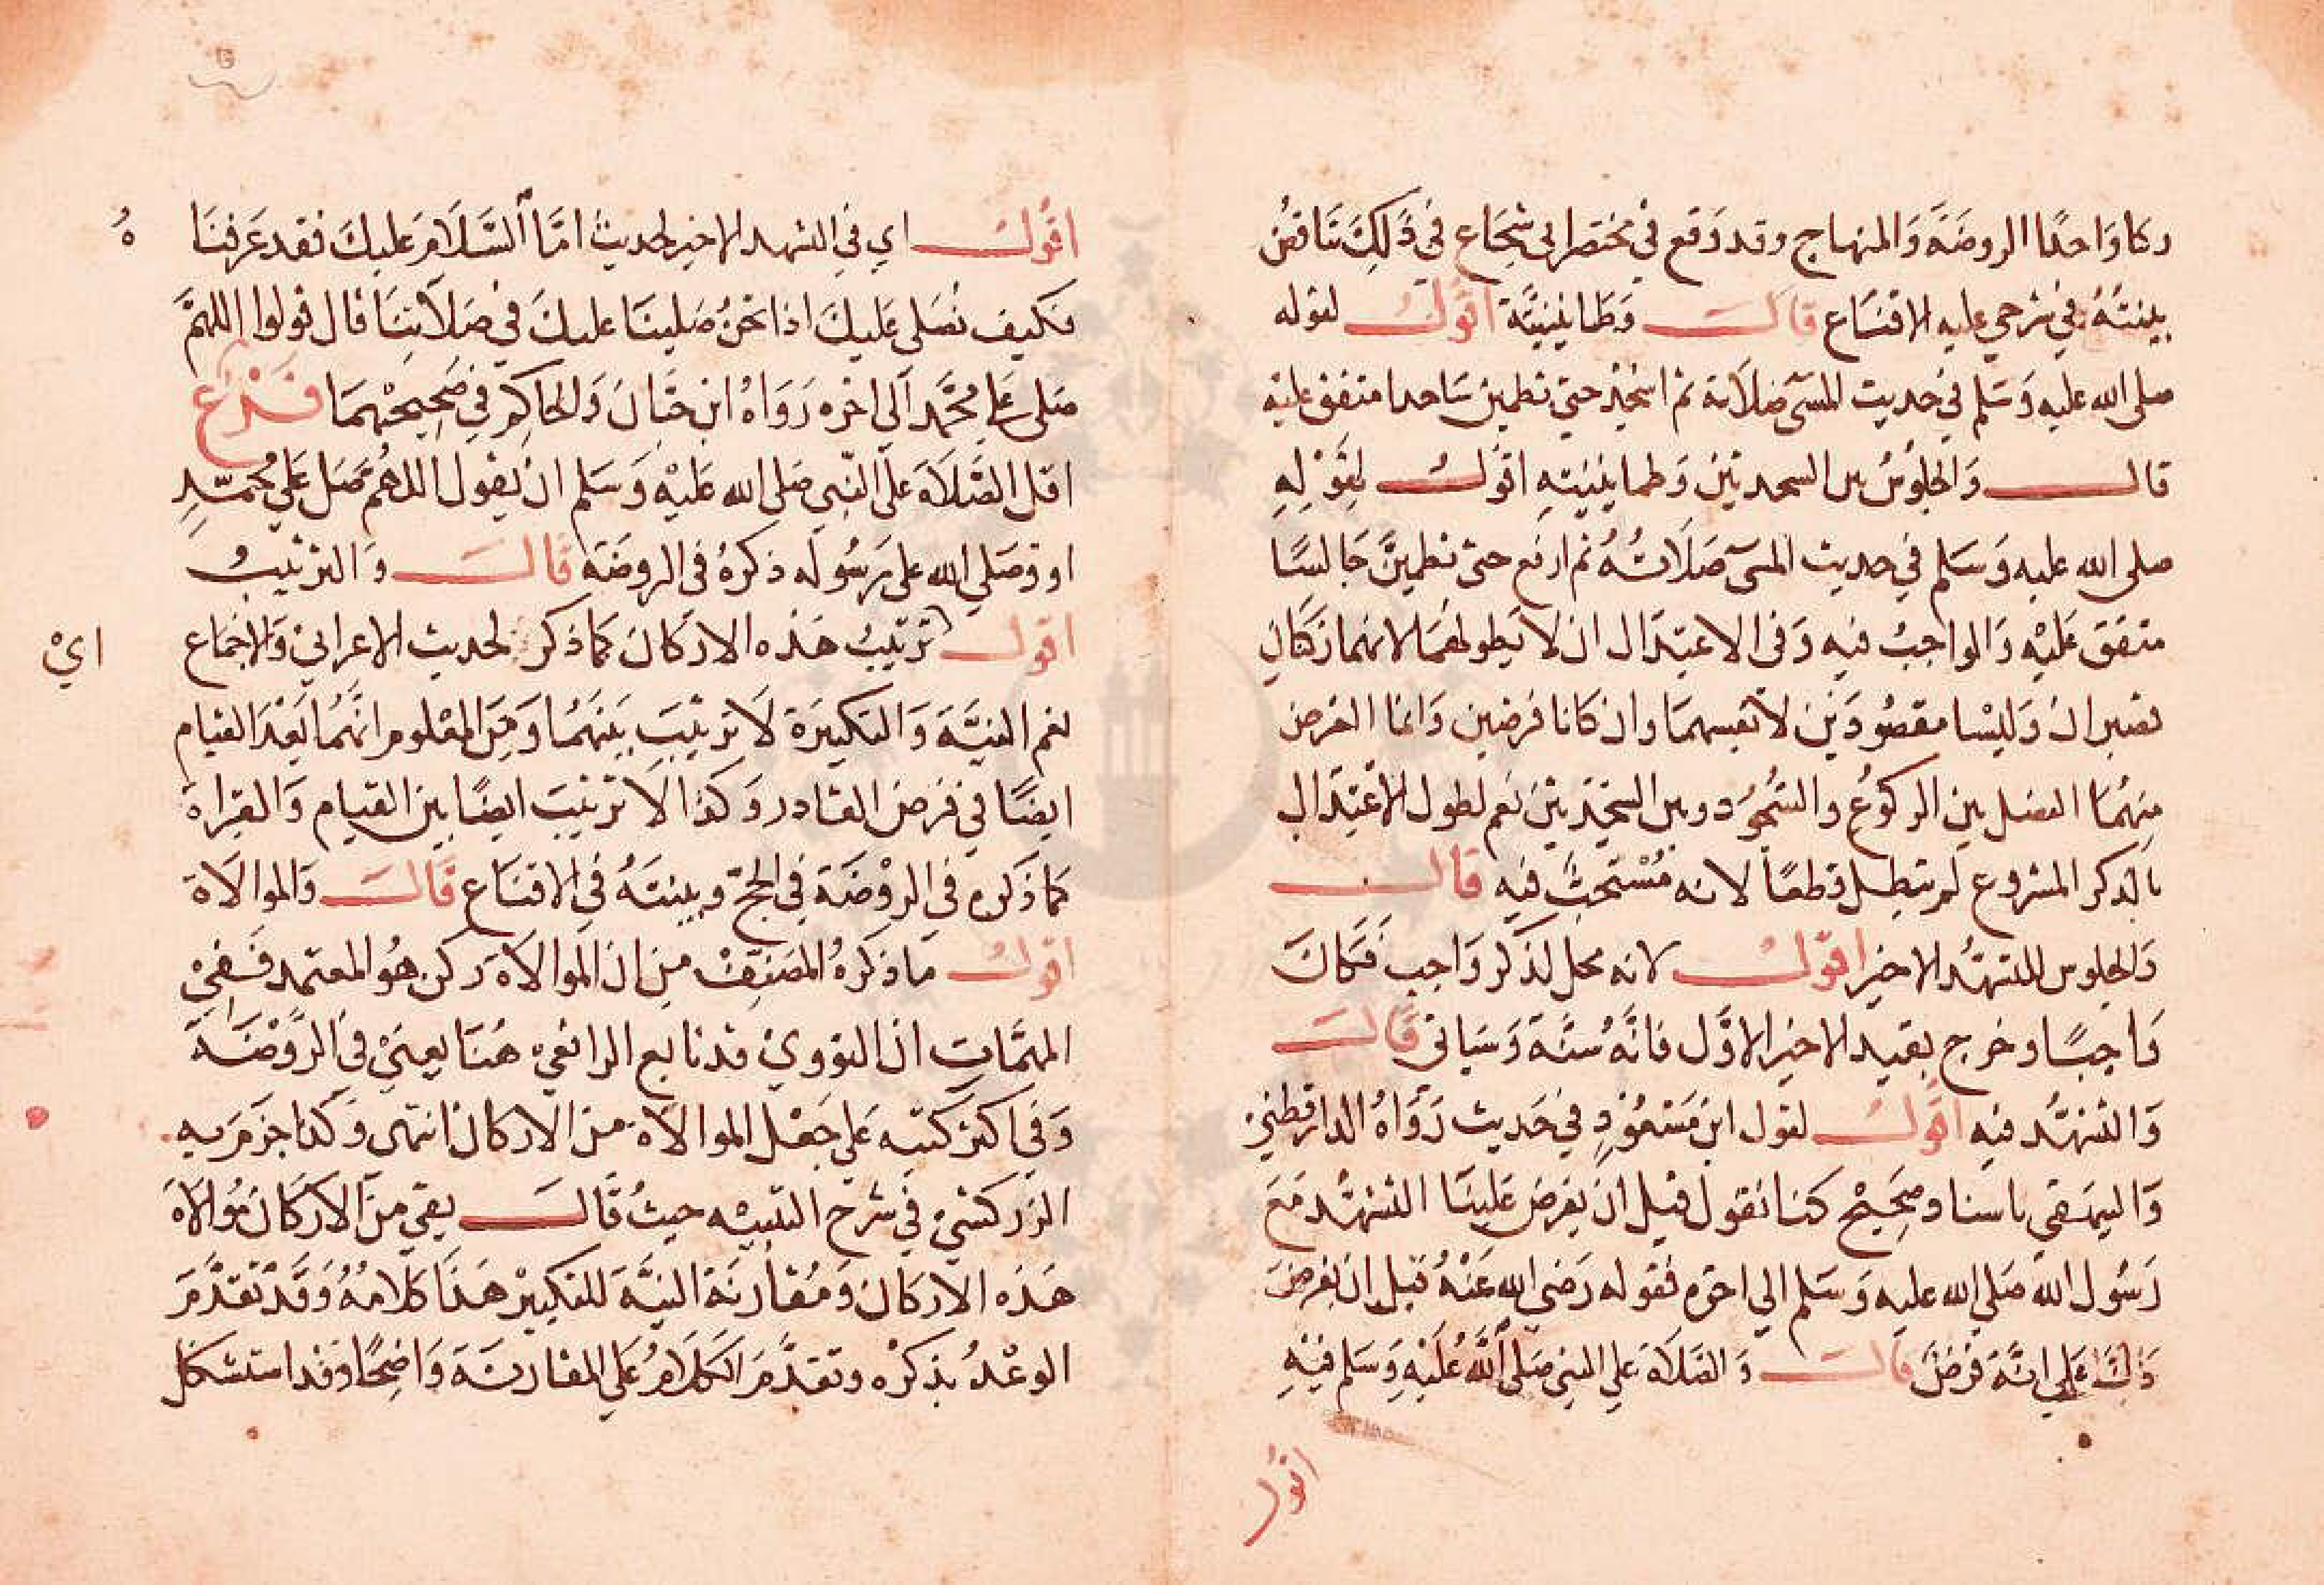 ركا واحدا الروضة والمنهاج وقد وقع في مختصر ابي شجاع في ذلك تناقض
بينته في شرحي عليه الاقناع قال وطمانينته اقول لقوله
صلى الله عليه وسلم في حديث المسئ صلاته ثم اسجد حتى تطمين ساجدا متفق عليه
قال والجلوس بين السجدتين وطمانينيته اقول لقوله
صلى الله عليه وسلم في حديث المسئ صلاته ثم ارفع حتى تطمين جالسا
متفق عليه والواجب فيه وفي الاعتدال ان لا يطولهما لانهما ركنان
قصيران وليسا مقصودين لانفسهما وان كانا فرضين وانما الغرض
منهما الفصل بين الركوع والسجود وبين السجدتين نعم لطول الاعتدال
بالذكر المشروع لم تبطل قطعا لانه مستحب فيه قال
والجلوس للتشهد الاخير اقول لانه محل لذكر واجب فكان
واجبا وخرج بقيد الاخير الاول فانه سنة وسياتي قال
والتشهد فيه اقول لقول ابن مسعود في حديث رواه الدارقطني
والبيهقي باسناد صحيح كنا نقول قبل ان يفرض علينا التشهد مع
رسول الله صلي الله عليه وسلم الي اخره فقوله رضي الله عنه قبل ان يفرض
دلنا علي انه فرض قال والصلاة علي النبي صلي الله عليه وسلم فيه
اقول
اقول اي في التشهد الاخير لحديث اما السلام عليك فقد عرفنا ه
فكيف نصلى عليك اذا نحن صلينا عليك في صلاتنا قال قولوا اللهم
صلى علي محمد الي اخره رواه ابن حبان والحاكم في صحيحهما فرع
اقل الصلاة على النبي صلى الله عليه وسلم ان يقول اللهم صل علي محمد
او وصلي الله على رسوله ذكره في الروضة قال والترتيب
اقول ترتيب هذه الاركان كما ذكر لحديث الاعرابي والاجماع اي
نعم النية والتكبيرة لا ترتيب بينهما ومن المعلوم انهما بعد القيام
ايضا في فرض القادر وكذا لا ترتيب ايضا بين القيام والقراة
كما ذكره في الروضة في الحج وبينته في الاقناع قال والموالاة
اقول ما ذكره المصنف من ان الموالاة ركن هو المعتمد ففي
المهمات ان النووي قد تابع الرافعي هنا يعني في الروضة
وفي اكثر كتبه علي جعل الموالاة من الاركان انتهى وكذا جزم به
الزركشي في شرح التنبيه حيث قال بقي من الاركان موالاة
هذه الاركان ومقارنة النية للتكبير هذا كلامه وقد تقدم
الوعد بذكره وتقدم الكلام علي المقارنة واضحا وقد استشكل